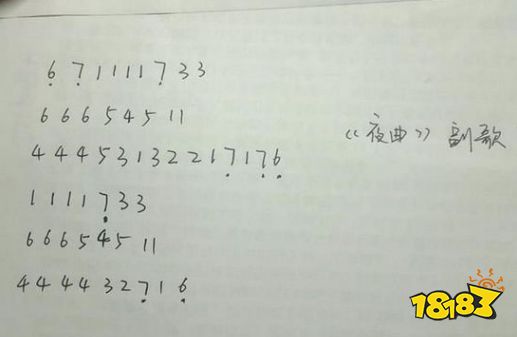 6 7 1 1 1 1 7 3 3
6 6 6 5 4 5 1 1
《夜曲》 副歌
4 4 4 5 3 1 3 2 2 2 1 7 1 7 6
1 1 1 1 7 3 3
6 6 6 5 4 5 1 1
4 4 4 4 3 2 7 1 6
18183